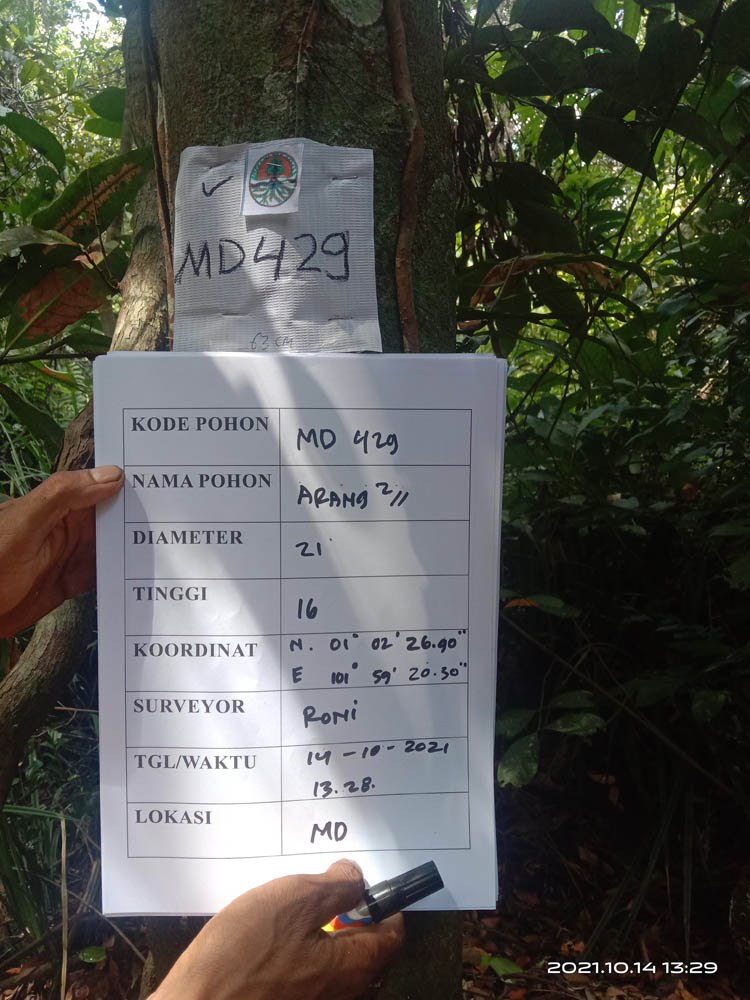 MD429
63 CM
KODE POHON MD 429
NAMA POHON ARANG2 //
DIAMETER 21
TINGGI 16
KOORDINAT N. 01° 02' 26.90"
E 101° 59' 20.30"
SURVEYOR ROMI
TGL/WAKTU 14-10-2021
13.28.
LOKASI MD
2021.10.14 13:29